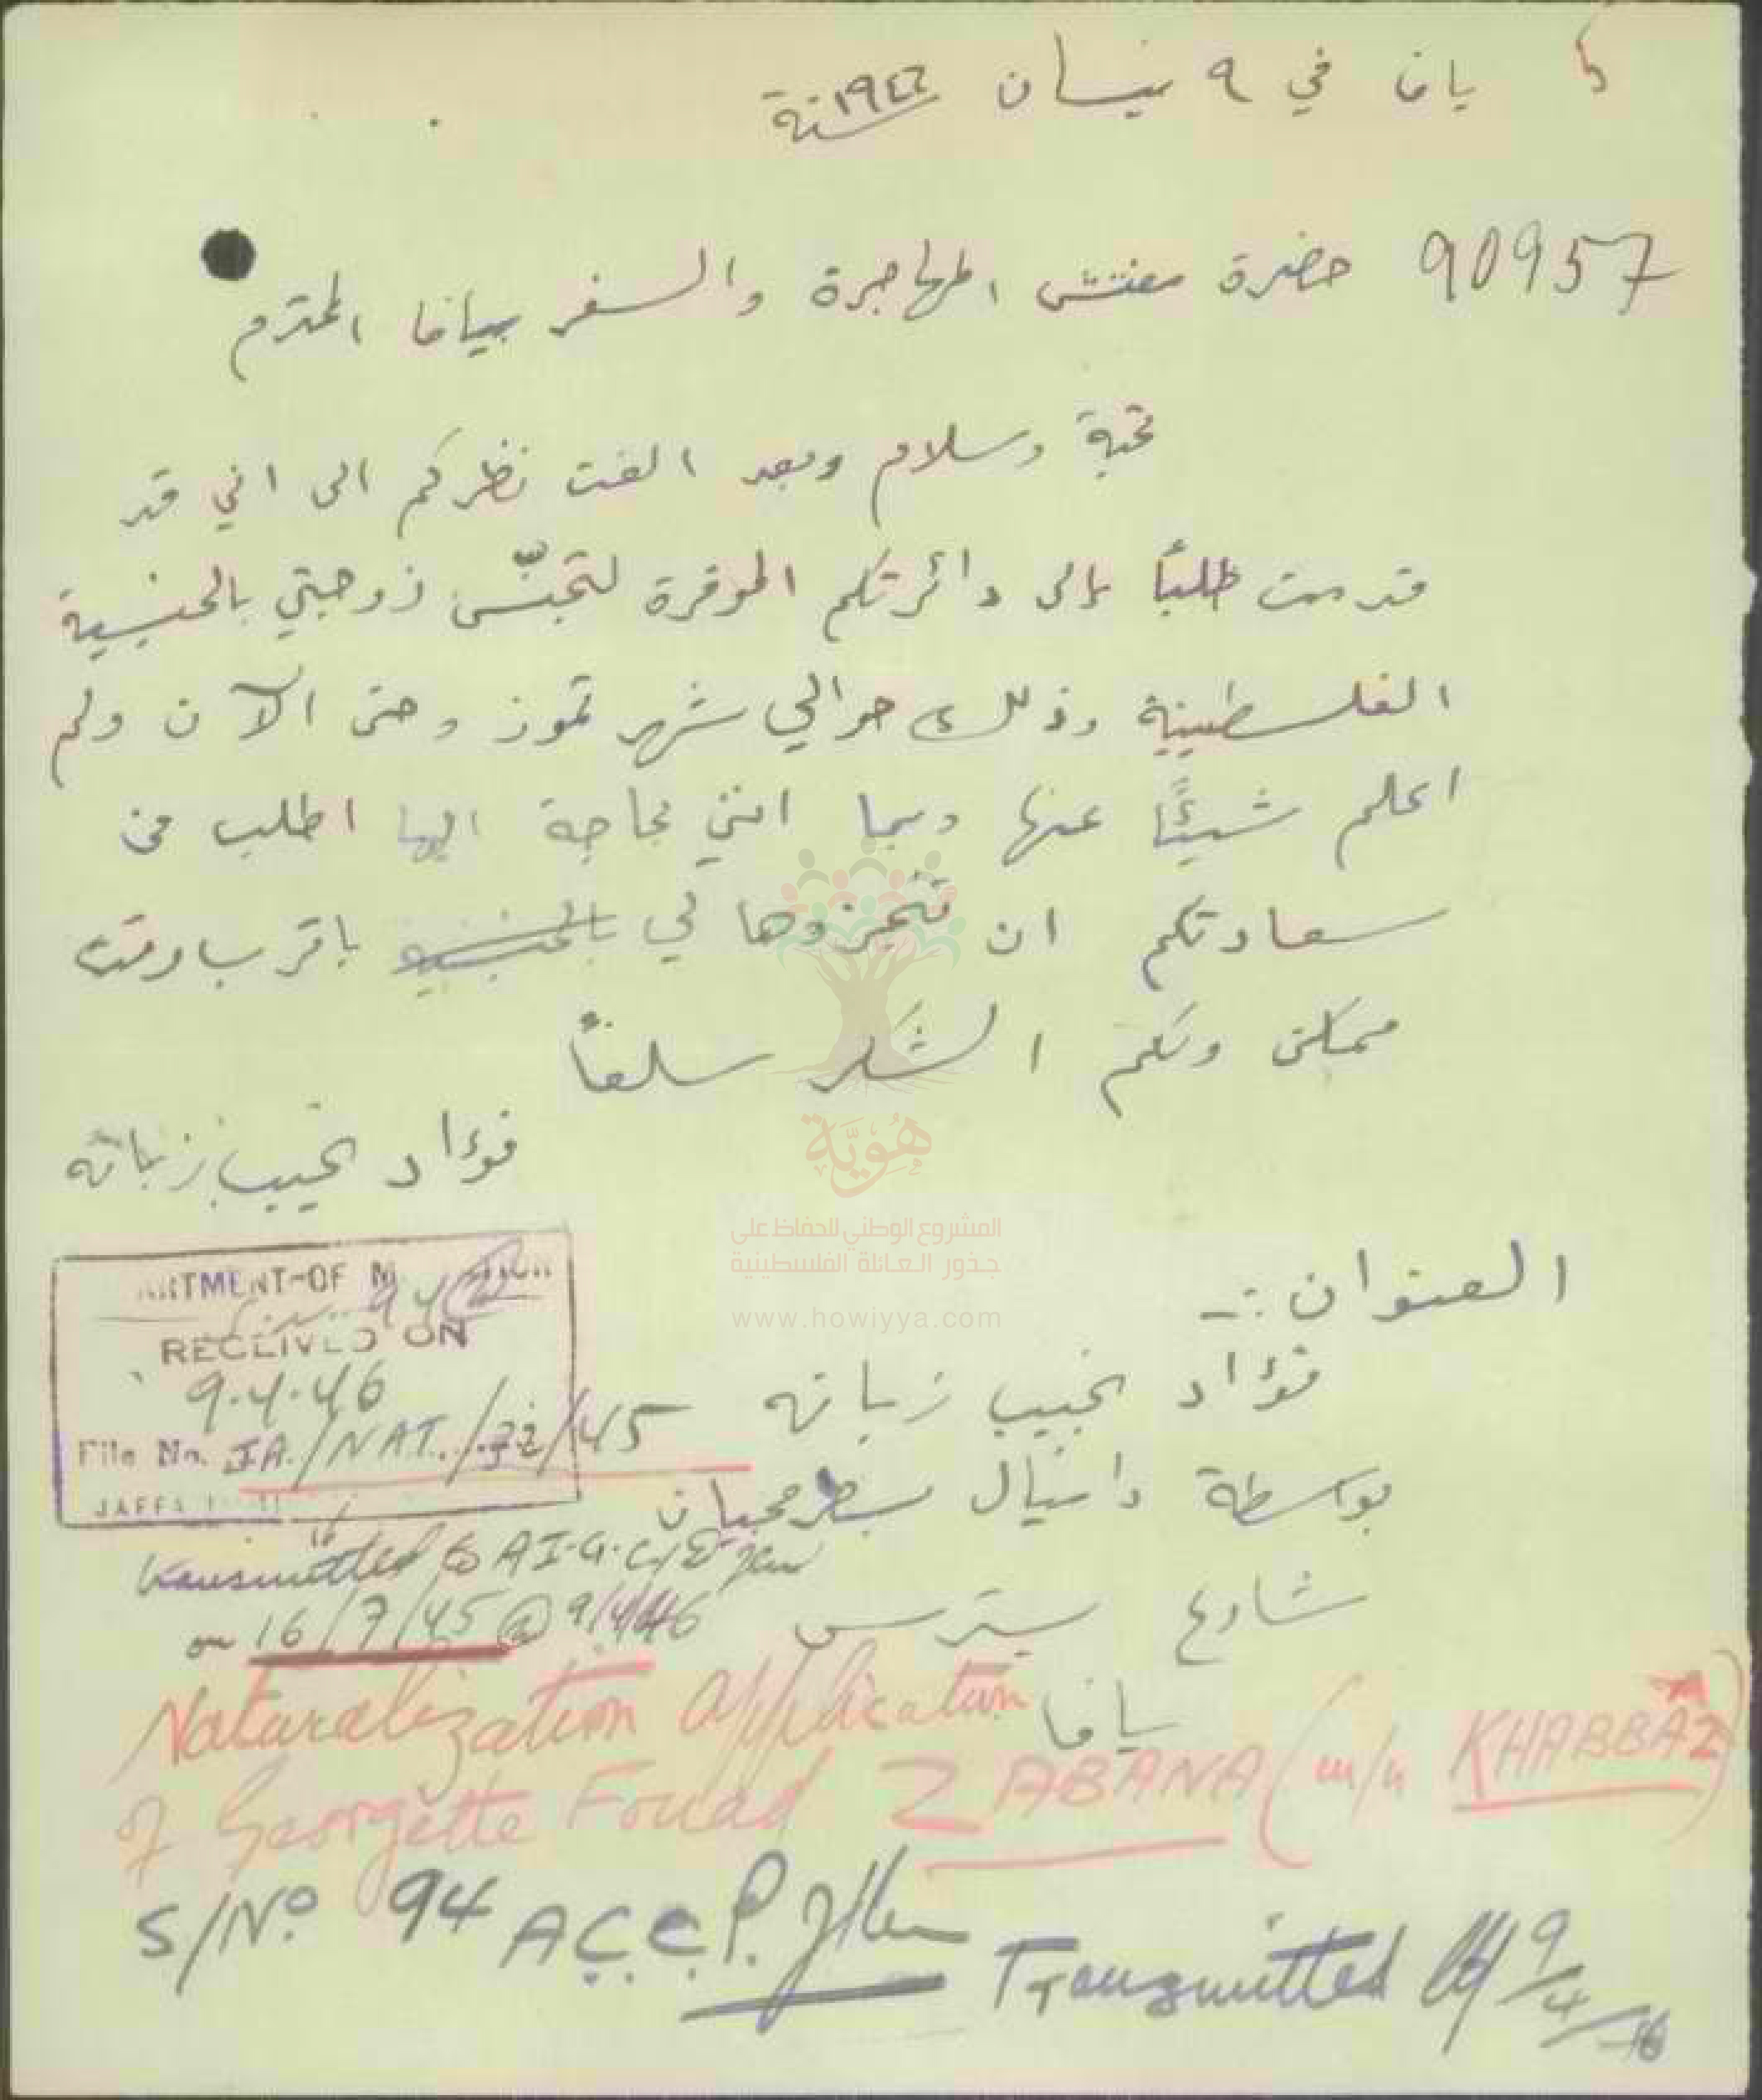 يافا في ٩ نيسان سنة ١٩٤٦
90957 حضرة مفتش المهاجرة والسفر بيافا المحترم
تحية وسلام وبعد الفت نظركم الى اني قد
قدمت طلباً إلى دائرتكم الموقرة لتجنّس زوجتي بالجنسية
الفلسطينية وذلك حوالي شهر تموز وحتى الآن ولم
اعلم شيئاً عنها وبما انني بحاجة اليها اطلب من
سعادتكم ان تنجزوها لي بالجنسية باقرب وقت
ممكن ولكم الشكر سلفاً
فؤاد نجيب زبانه
العنوان :-
فؤاد نجيب زبانه
بواسطة دانيال
شارع بسترس
يافا
RTMENT OF
RECEIVED ON
9.4.46
File No. JA./NAT./33/45
JAFFA
transmitted to A.I.G. C.I.D. Jem
on 16/7/45 @ 9/4/46
Naturalization application
of Georgette Fouad ZABANA (m/n KHABBAZ)
S/No. 94
Transmitted 9/4/46
هُوِيَّة
المشروع الوطني للحفاظ على
جذور العائلة الفلسطينية
www.howiyya.com